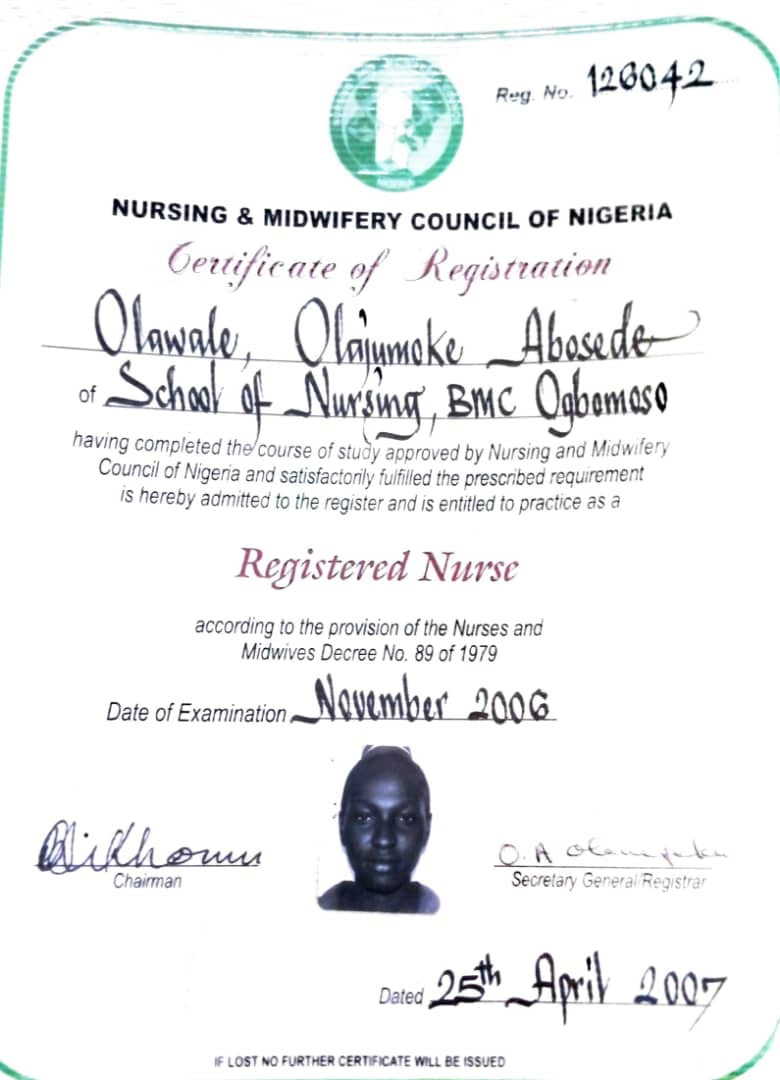 Reg. No. 126042
NIGERIA
NURSING & MIDWIFERY COUNCIL OF NIGERIA
Certificate of Registration
Olawale, Olajumoke Abosede
of School of Nursing, BMC Ogbomoso
having completed the course of study approved by Nursing and Midwifery
Council of Nigeria and satisfactorily fulfilled the prescribed requirement
is hereby admitted to the register and is entitled to practice as a
Registered Nurse
according to the provision of the Nurses and
Midwives Decree No. 89 of 1979
Date of Examination November 2006
O. A
Chairman
Secretary General/Registrar
Dated 25th April 2007
IF LOST NO FURTHER CERTIFICATE WILL BE ISSUED